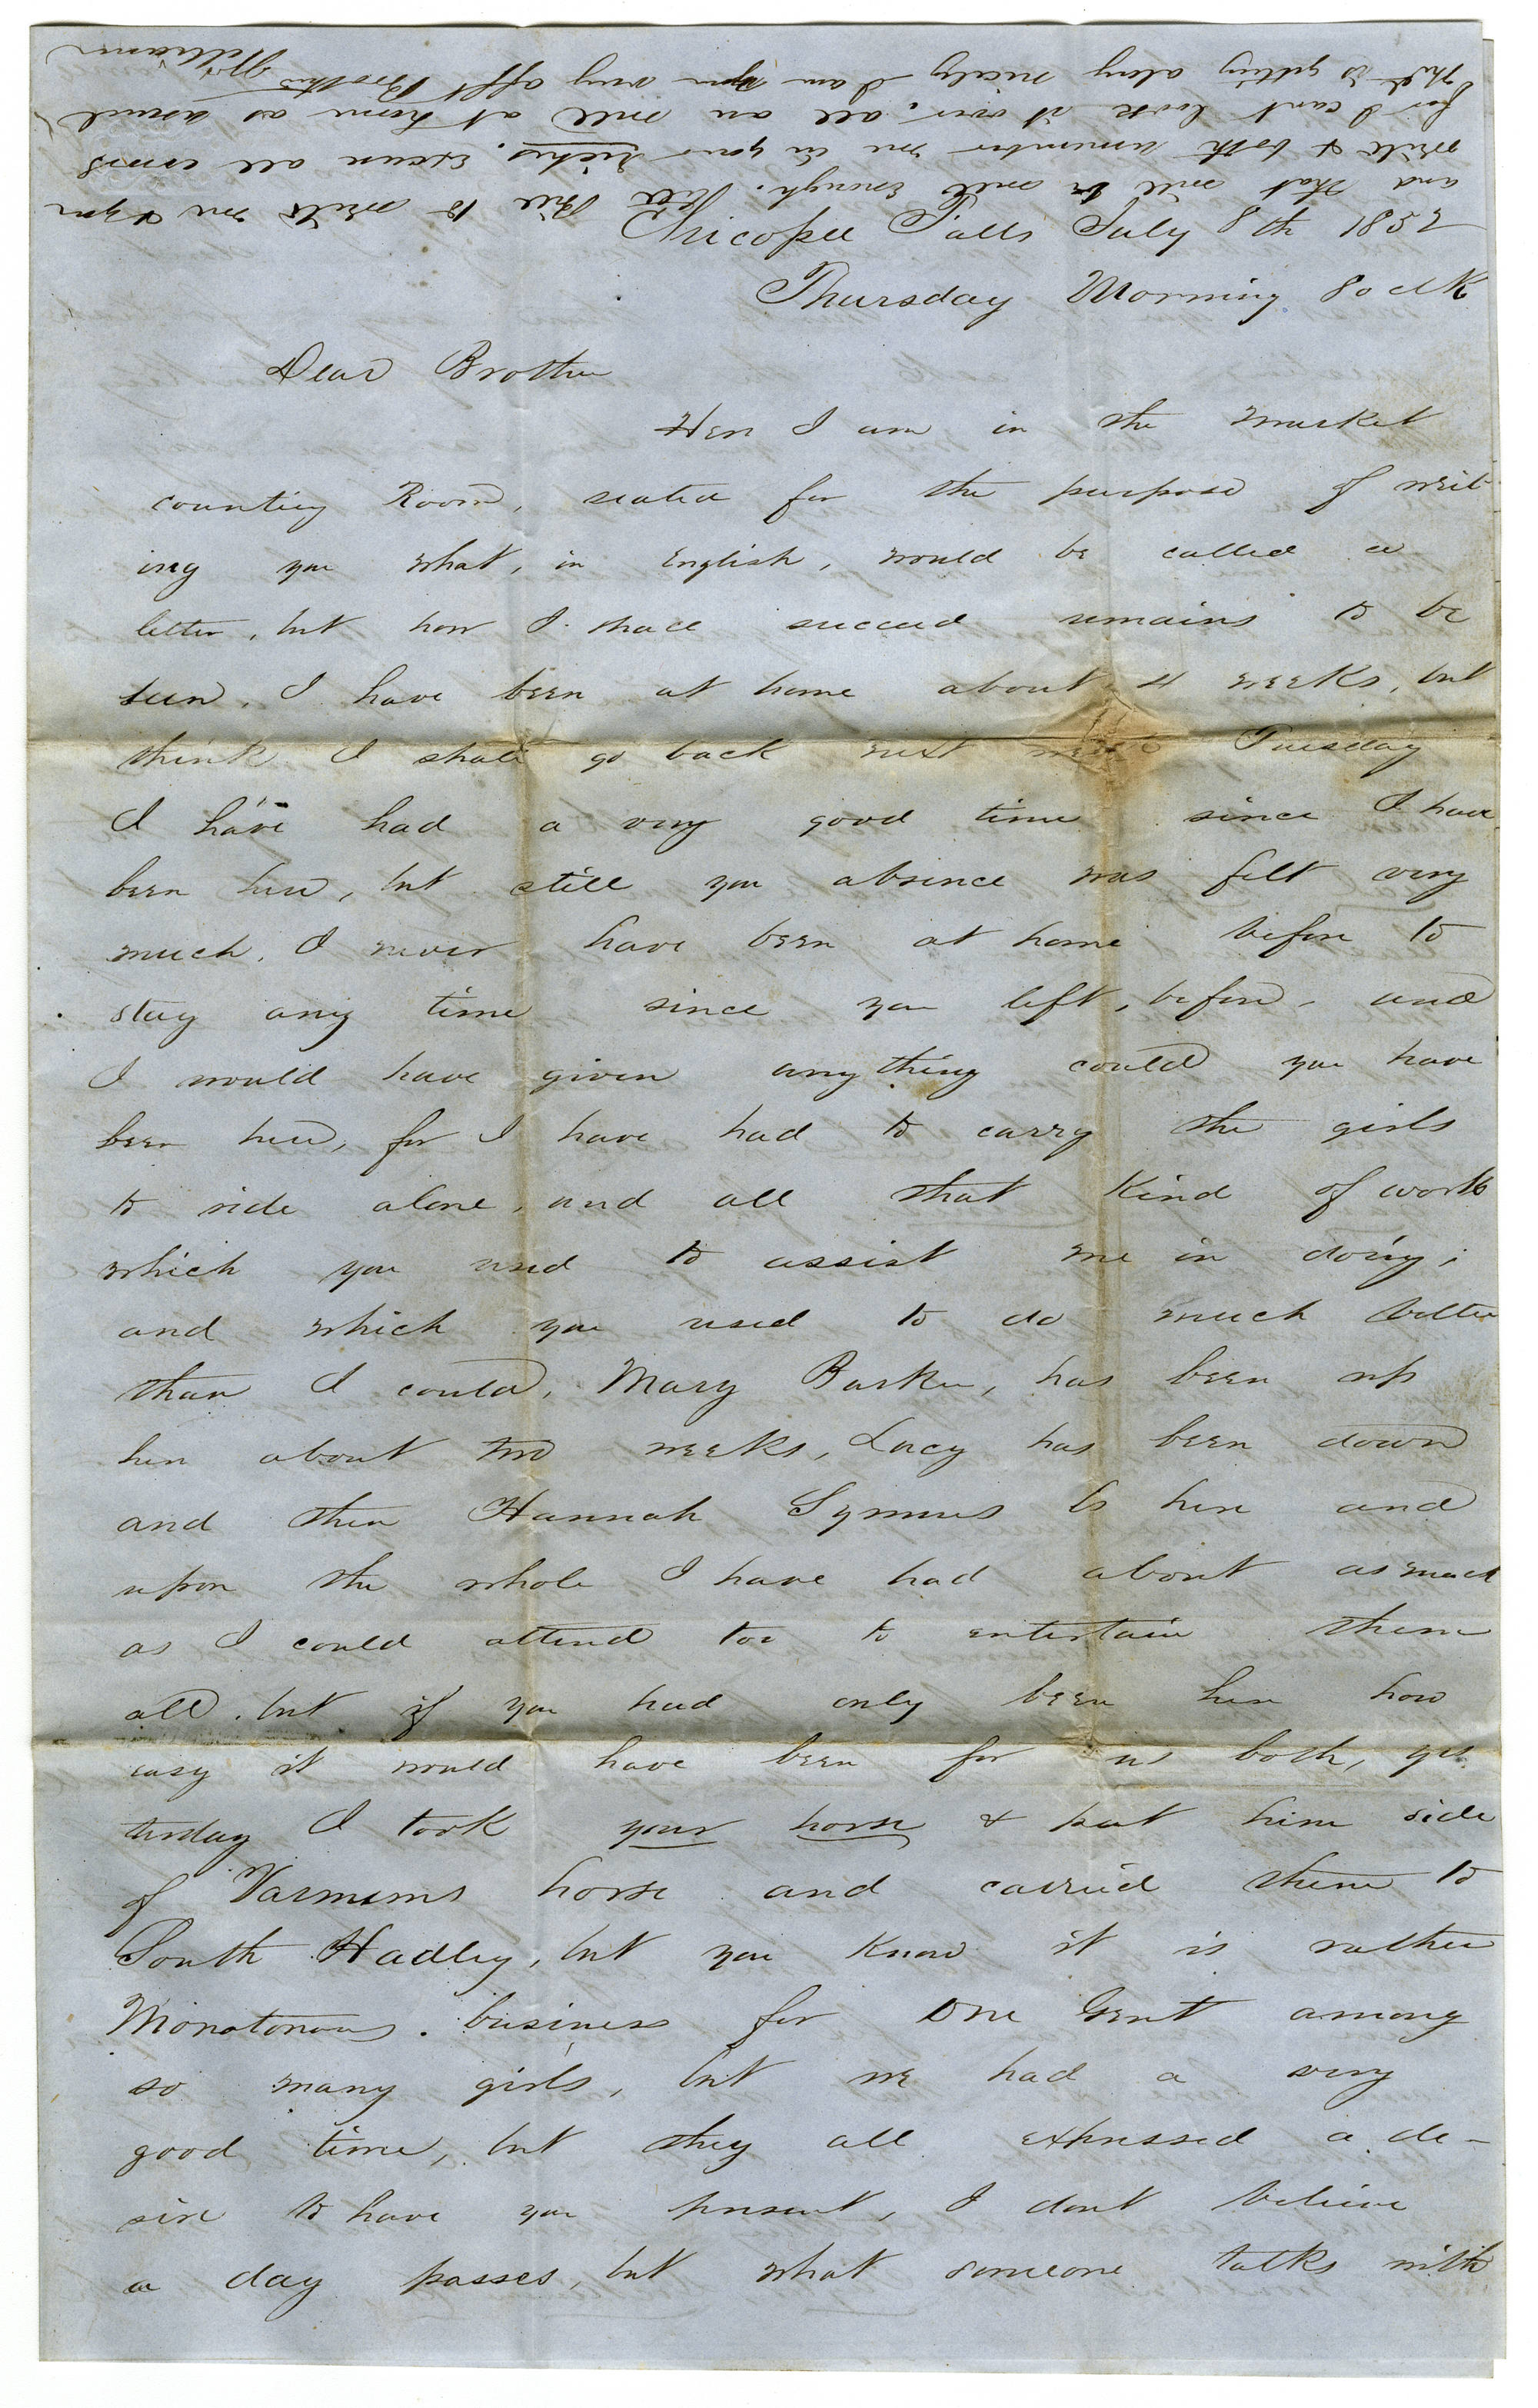 Chicopee Falls July 8th 1852
Thursday Morning 8 oclk
Dear Brother
Here I am in the Market
counting Room, seated for the purpose of writ-
ing you what, in English, would be called a
letter, but how I shall succeed remains to be
seen. I have been at home about 4 weeks, but
think I shall go back next week Tuesday
I have had a very good time since I have
been here, but still you absence was felt very
much, I never have been at home before to
stay any time since you left, before, and
I would have given any thing could you have
been here, for I have had to carry the girls
to ride alone, and all that kind of work
which you used to assist me in doing,
and which you used to do much better
than I could, Mary Barker, has been up
here about two weeks, Lucy has been down
and then Hannah Symms is here and
upon the whole I have had about as much
as I could attend too to entertain them
all, but if you had only been here how
easy it would have been for us both, yes
terday I took your horse & put him side
of Varnums horse and carried them to
South Hadley, but you know it is rather
Monotonous business for one Gent among
so many girls, but we had a very
good time, but they all expressed a de-
sire to have you present, I dont believe
a day passes, but what someone talks with
and that will be well enough. Tell Phil to write me & you
write & both remember me in your riches. Excuse all errors
for I cant look it over, all are well at home as usual
Phil is getting along nicely I am your very afft Brother
William